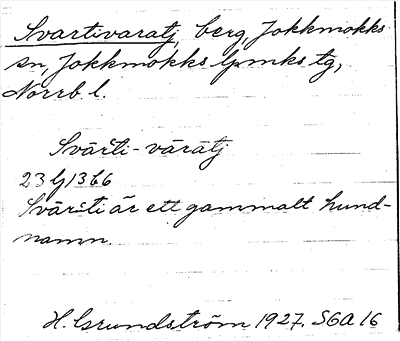 Svartivaratj, berg, Jokkmokks
sn, Jokkmokks lpmks tg,
Norrb. l.
Svārti-vārātj
23 G 1366
Svārti är ett gammalt hund-
namn.
H. Grundström 1927. SGA 16